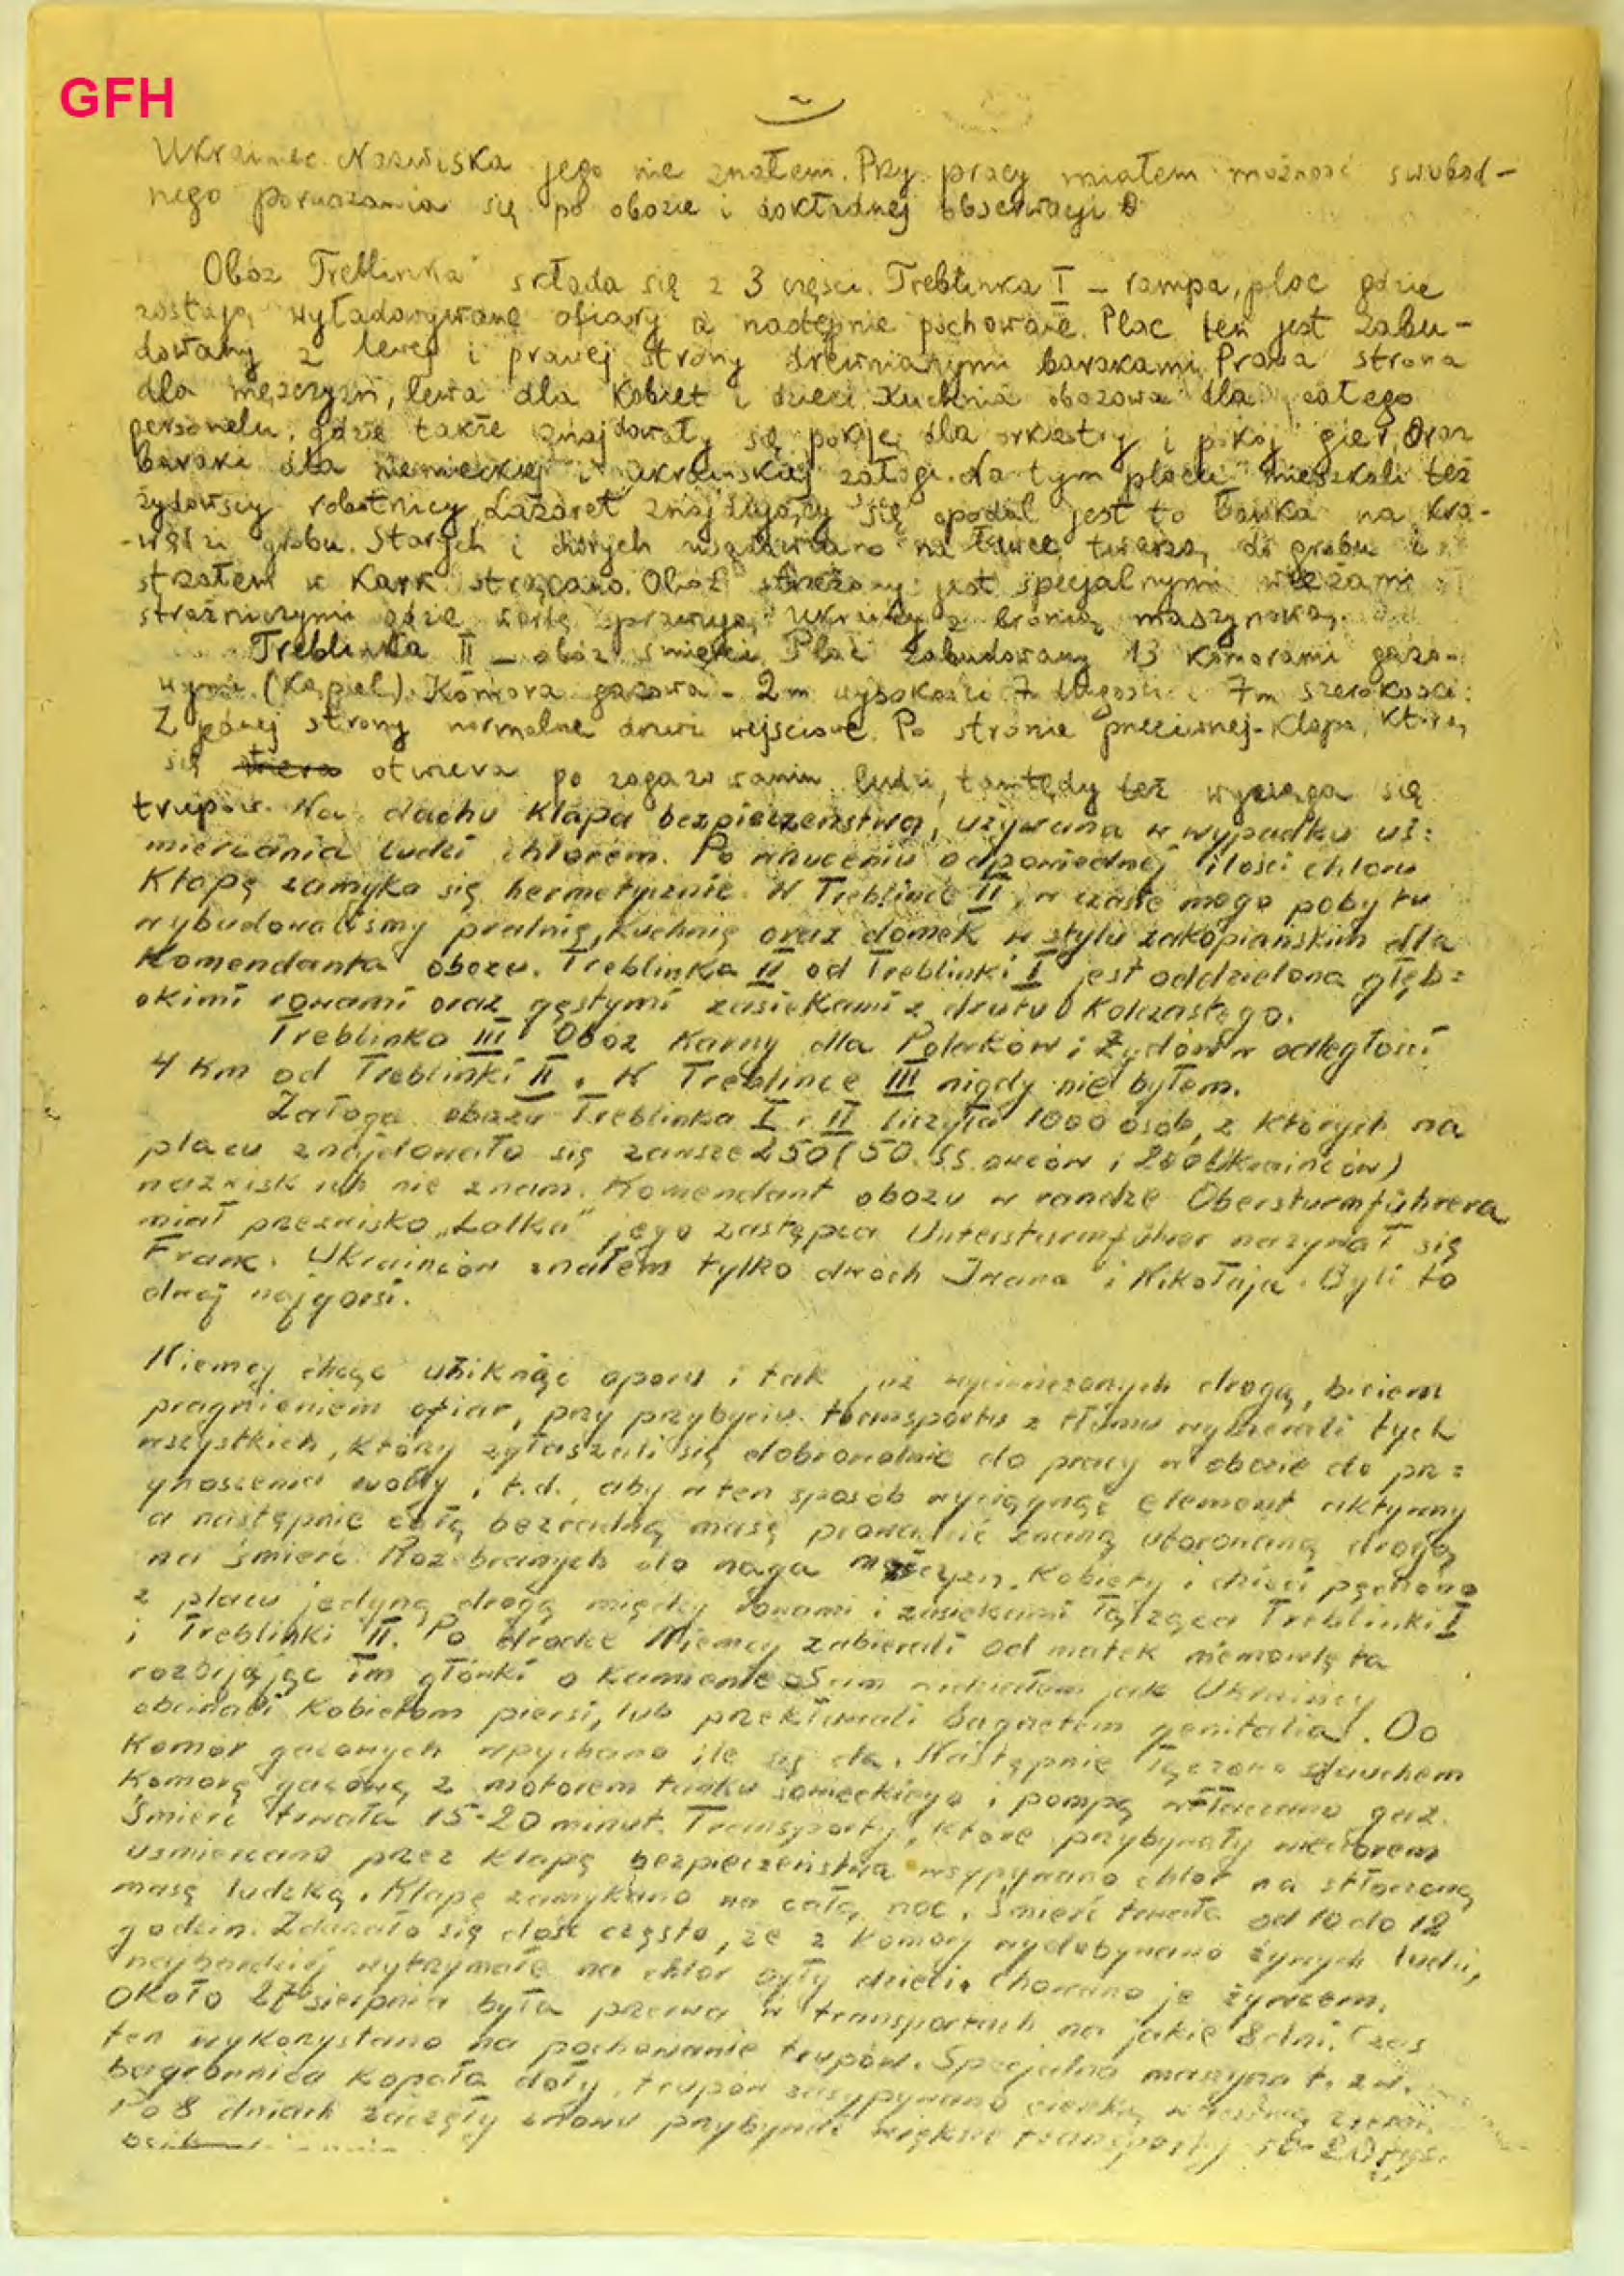 GFH
Ukrainiec. Nazwiska jego nie znałem. Przy pracy miałem możność swobod-
nego poruszania się po obozie i dokładnej obserwacji
Obóz Treblinka składa się z 3 części. Treblinka I – rampa, plac gdzie
zostają wyładowywane ofiary a następnie pochowane. Plac ten jest zabu-
dowany z lewej i prawej strony drewnianymi barakami. Prawa strona
dla mężczyzn, lewa dla kobiet i dzieci. Kuchnia obozowa dla całego
personelu, gdzie także znajdowały się pokoje dla orkiestry i pokój gier. Oraz
baraki dla niemieckiej i ukraińskiej załogi. Na tym placu mieszkali też
żydowscy robotnicy. Lazaret znajdujący się opodal jest to ławka na kra-
-wędzi grobu. Starych i chorych na ławce twarzą do grobu i
strzałem w kark strącano. Obóz strzeżony jest specjalnymi wieżami
strażniczymi gdzie wartę sprawują Ukraińcy z bronią maszynową.
Treblinka II – obóz śmierci. Plac zabudowany 13 komorami gazo-
wymi. (Kąpiel). Komora gazowa – 2m wysokości 7 długości i 7m szerokości:
Z jednej strony normalne drzwi wejściowe. Po stronie przeciwnej – klapa, którą
się otwiera po zagazowaniu ludzi, tamtędy też wyciąga się
trupów. Na dachu klapa bezpieczeństwa, używana w wypadku uś=
miercania ludzi chlorem. Po wrzuceniu odpowiedniej ilości chloru
Kłapę zamyka się hermetycznie. W Treblince II, w czasie mego pobytu
wybudowaliśmy pralnię, kuchnię oraz domek w stylu zakopiańskim dla
Komendanta obozu. Treblinka II od Treblinki I jest oddzielona głęb=
okimi rowami oraz gęstymi zasiekami z drutu kolczastego.
Treblinka III Obóz Karny dla Polaków i Żydów w odległości
4 Km od Treblinki II. W Treblince III nigdy nie byłem.
Załoga obozu Treblinka I i II liczyła 1000 osób, z których na
placu znajdowało się zawsze 250 (50 S.S.owców i 200 Ukraińców)
nazwisk ich nie znam. Komendant obozu w randze Obersturmführera
miał przezwisko „Lalka" jego zastępca Untersturmführer nazywał się
Franc. Ukraińców znałem tylko dwóch Iwana i Nikołaja. Byli to
dwaj najgorsi.
Niemcy chcąc uniknąć oporu i tak już wycieńczonych drogą, biciem
pragnieniem ofiar, przy przybyciu transportu z tłumu wybierali tych
wszystkich, którzy zgłaszali się dobrowolnie do pracy w obozie do pr=
ynoszenia wody i t.d., aby w ten sposób wyciągnąć element aktywny
a następnie całą bezradną masę prowadzić znaną utorowaną drogą
na śmierć. Rozebranych do naga mężczyzn, kobiety i dzieci pędzono
z placu jedyną drogą między rowami i zasiekami łączącą Treblinki I
i Treblinki II. Po drodze Niemcy zabierali od matek niemowlęta
rozbijając im główki o kamienie. Sam widziałem jak Ukraińcy
obcinali kobietom piersi, lub przekłuwali bagnetem genitalia. Do
komór gazowych wpychano ile się da. Następnie łączono
komorę gazową z motorem tanku sowieckiego i pompą wtłaczano gaz.
Śmierć trwała 15-20 minut. Transporty, które przybywały wieczorem
uśmiercano przez klapę bezpieczeństwa wsypywano chlor na stłoczoną
masę ludzką. Klapę zamykano na całą noc. Śmierć trwała od 10 do 12
godzin. Zdarzało się dość często, że z komory wydobywano żywych ludzi,
najbardziej wytrzymałe na chlor były dzieci. Chowano je żywcem.
Około sierpnia była przerwa w transportach na jakie 8 dni. Czas
ten wykorzystano na pochowanie trupów. Specjalna maszyna t. zw.
kopała doły, trupów zasypywano cienką warstwą
Po 8 dniach zaczęły znowu przybywać większe transporty